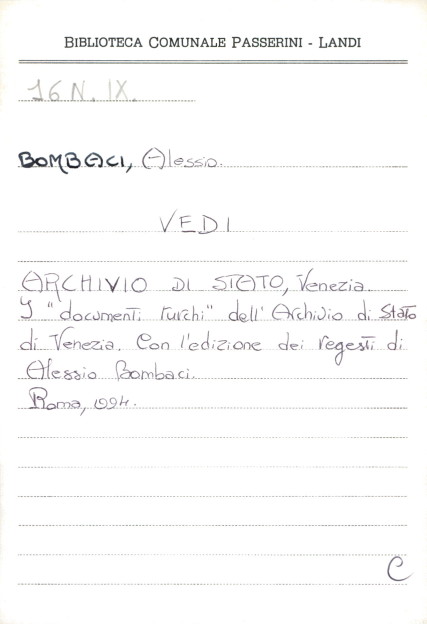 BIBLIOTECA COMUNALE PASSERINI - LANDI
16 N. IX.
BOMBACI, Alessio.
VEDI
ARCHIVIO DI STATO, Venezia.
I "documenti turchi" dell'Archivio di Stato
di Venezia. Con l'edizione dei regesti di
Alessio Bombaci.
Roma, 1994.
C